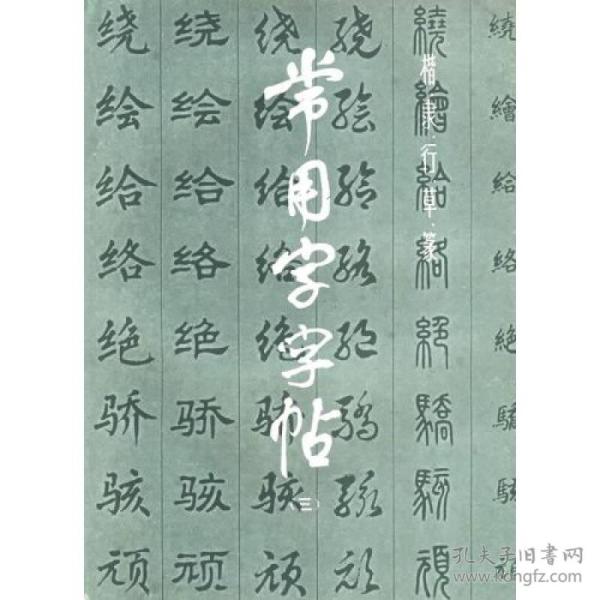 常用字字帖
(三)
楷·隶·行·草·篆
绕 绕 绕 绕 繞 繞
绘 绘 绘 绘 繪 繪
给 给 给 给 給 給
络 络 络 络 絡 絡
绝 绝 绝 绝 絕 絶
骄 骄 骄 驕 驕 驕
骇 骇 骇 駭 駭 駭
顽 顽 顽 顽 頑 頑
孔夫子旧书网
www.kongfz.com